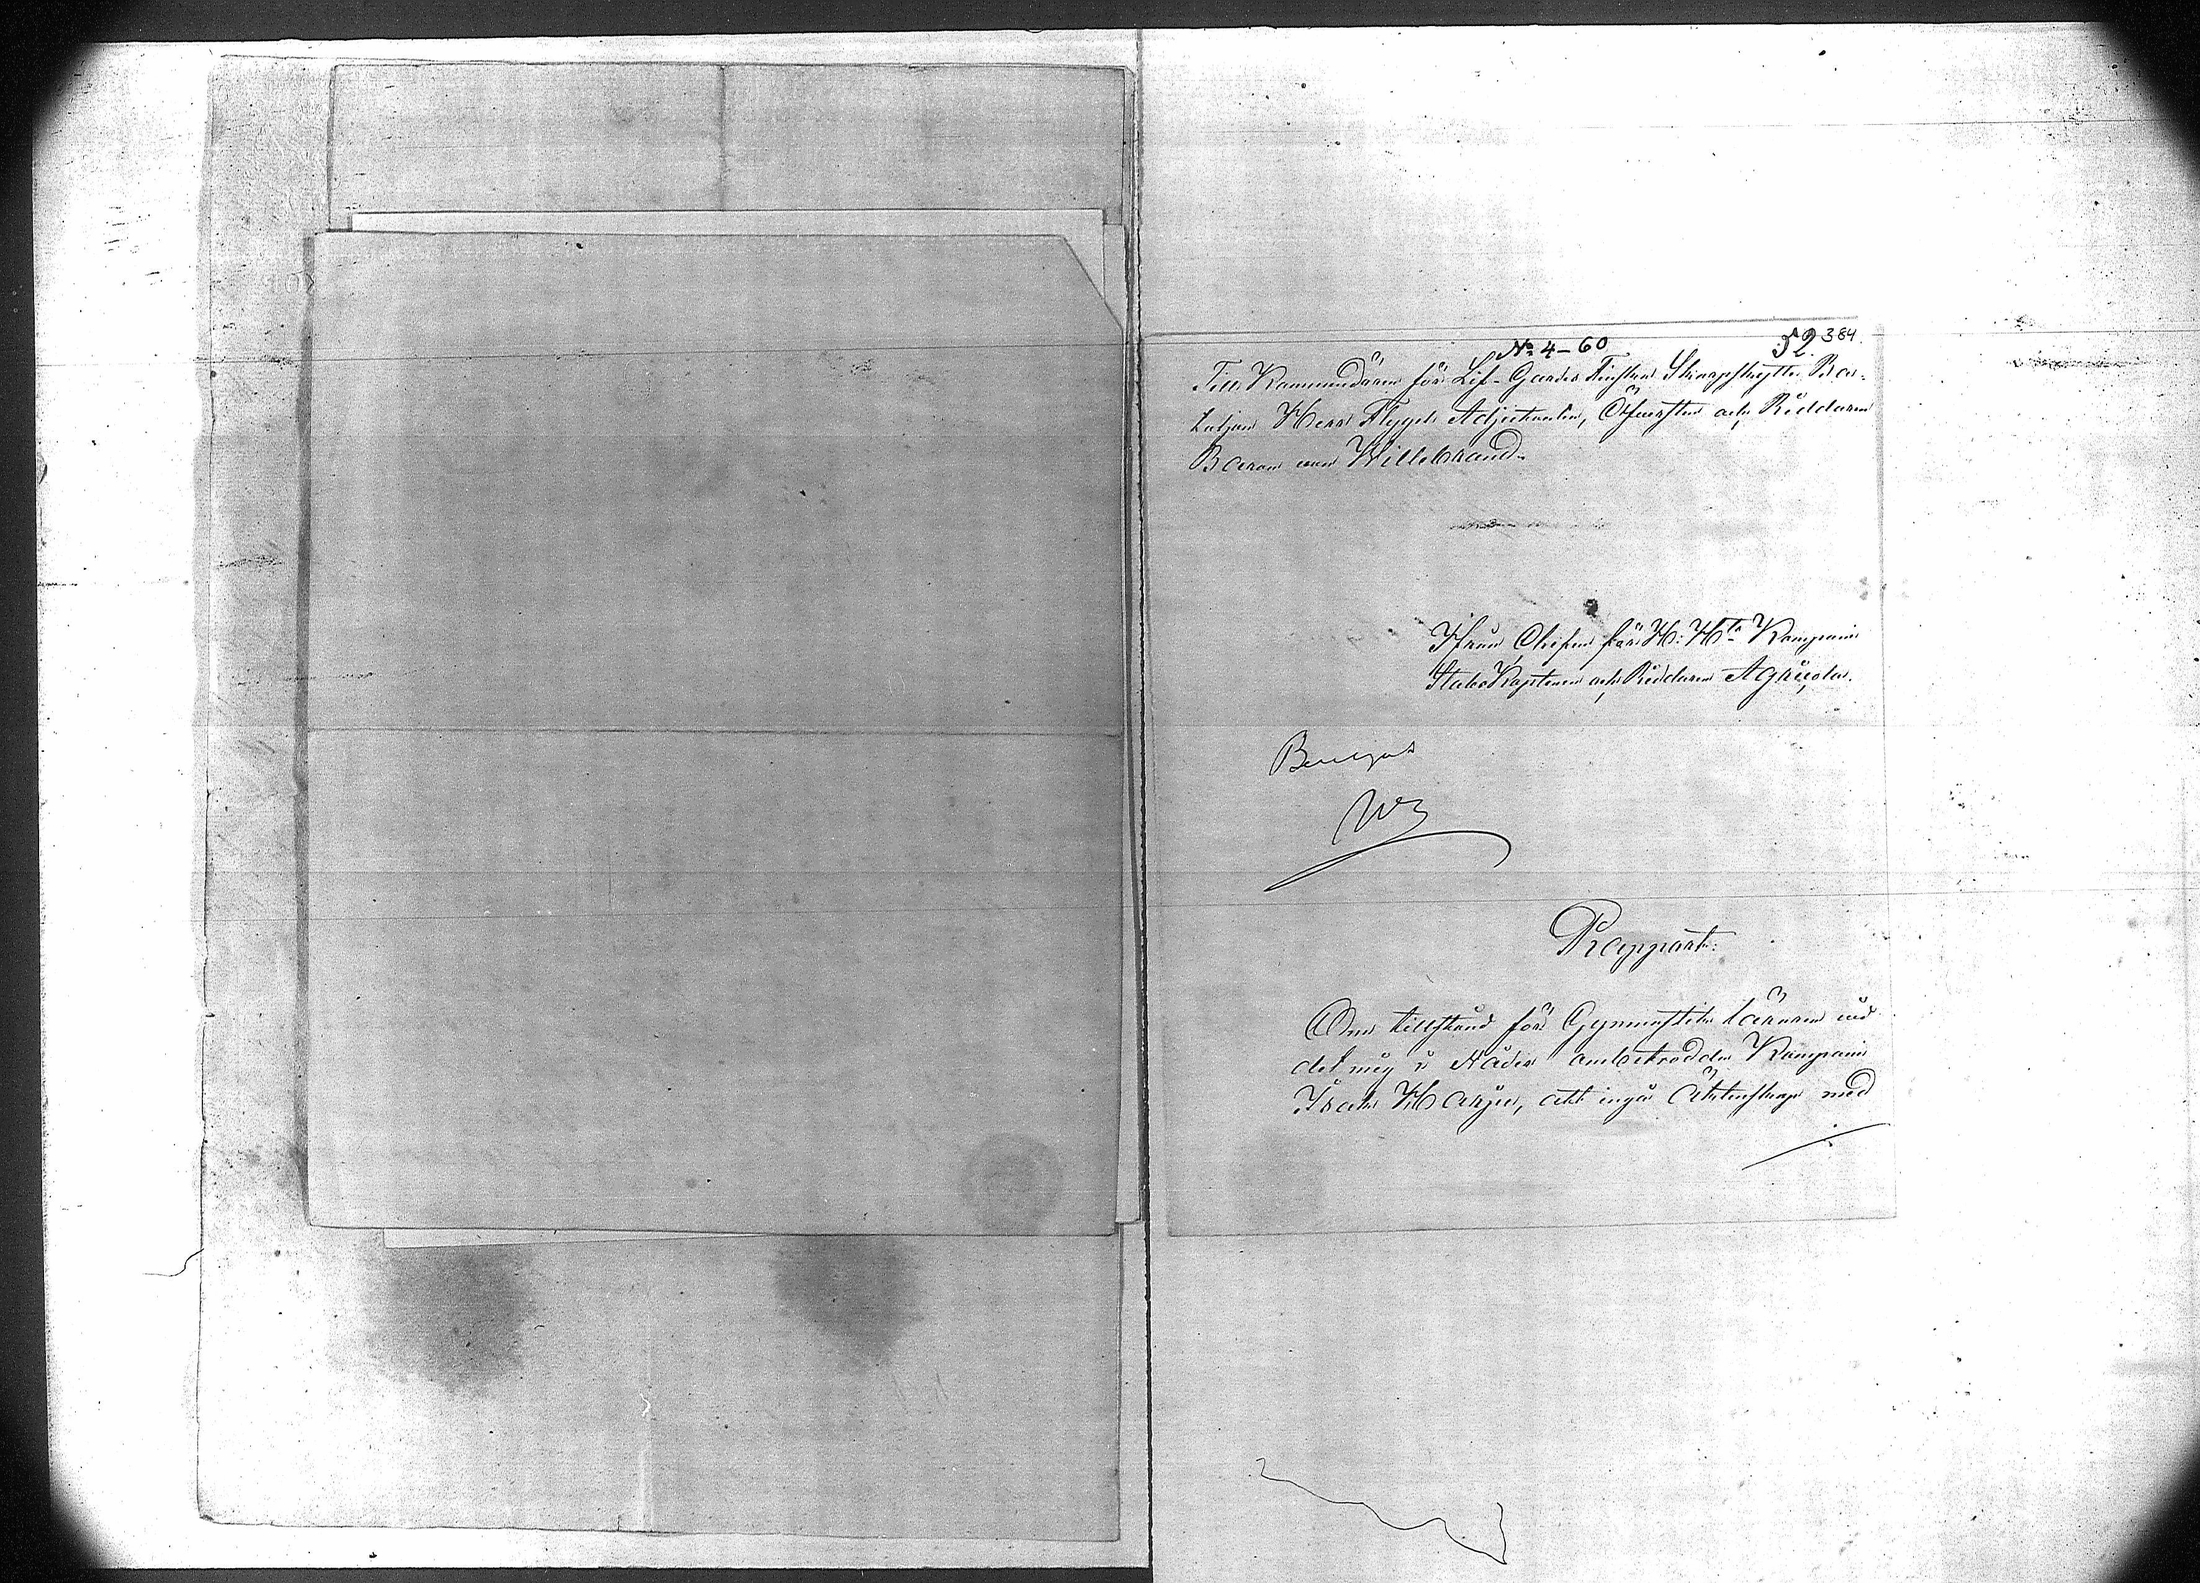 № 4-60
52. 384.
Till Kommendören för Lif-Gardes Finska Skarpskytte Ba-
taljon Herr Flygel Adjutanten, Öfversten och Riddaren
Baron von Willebrand.
Ifrån Chefen för H: Hts Kompani
Stabs Kapitenen och Riddaren Agricola.
Beviljas
Rapport:
Om tillstånd för Gymnastik läraren vid
det mig i Nåder anbetrodda Kompani
Isak Harju, att ingå Äktenskap med